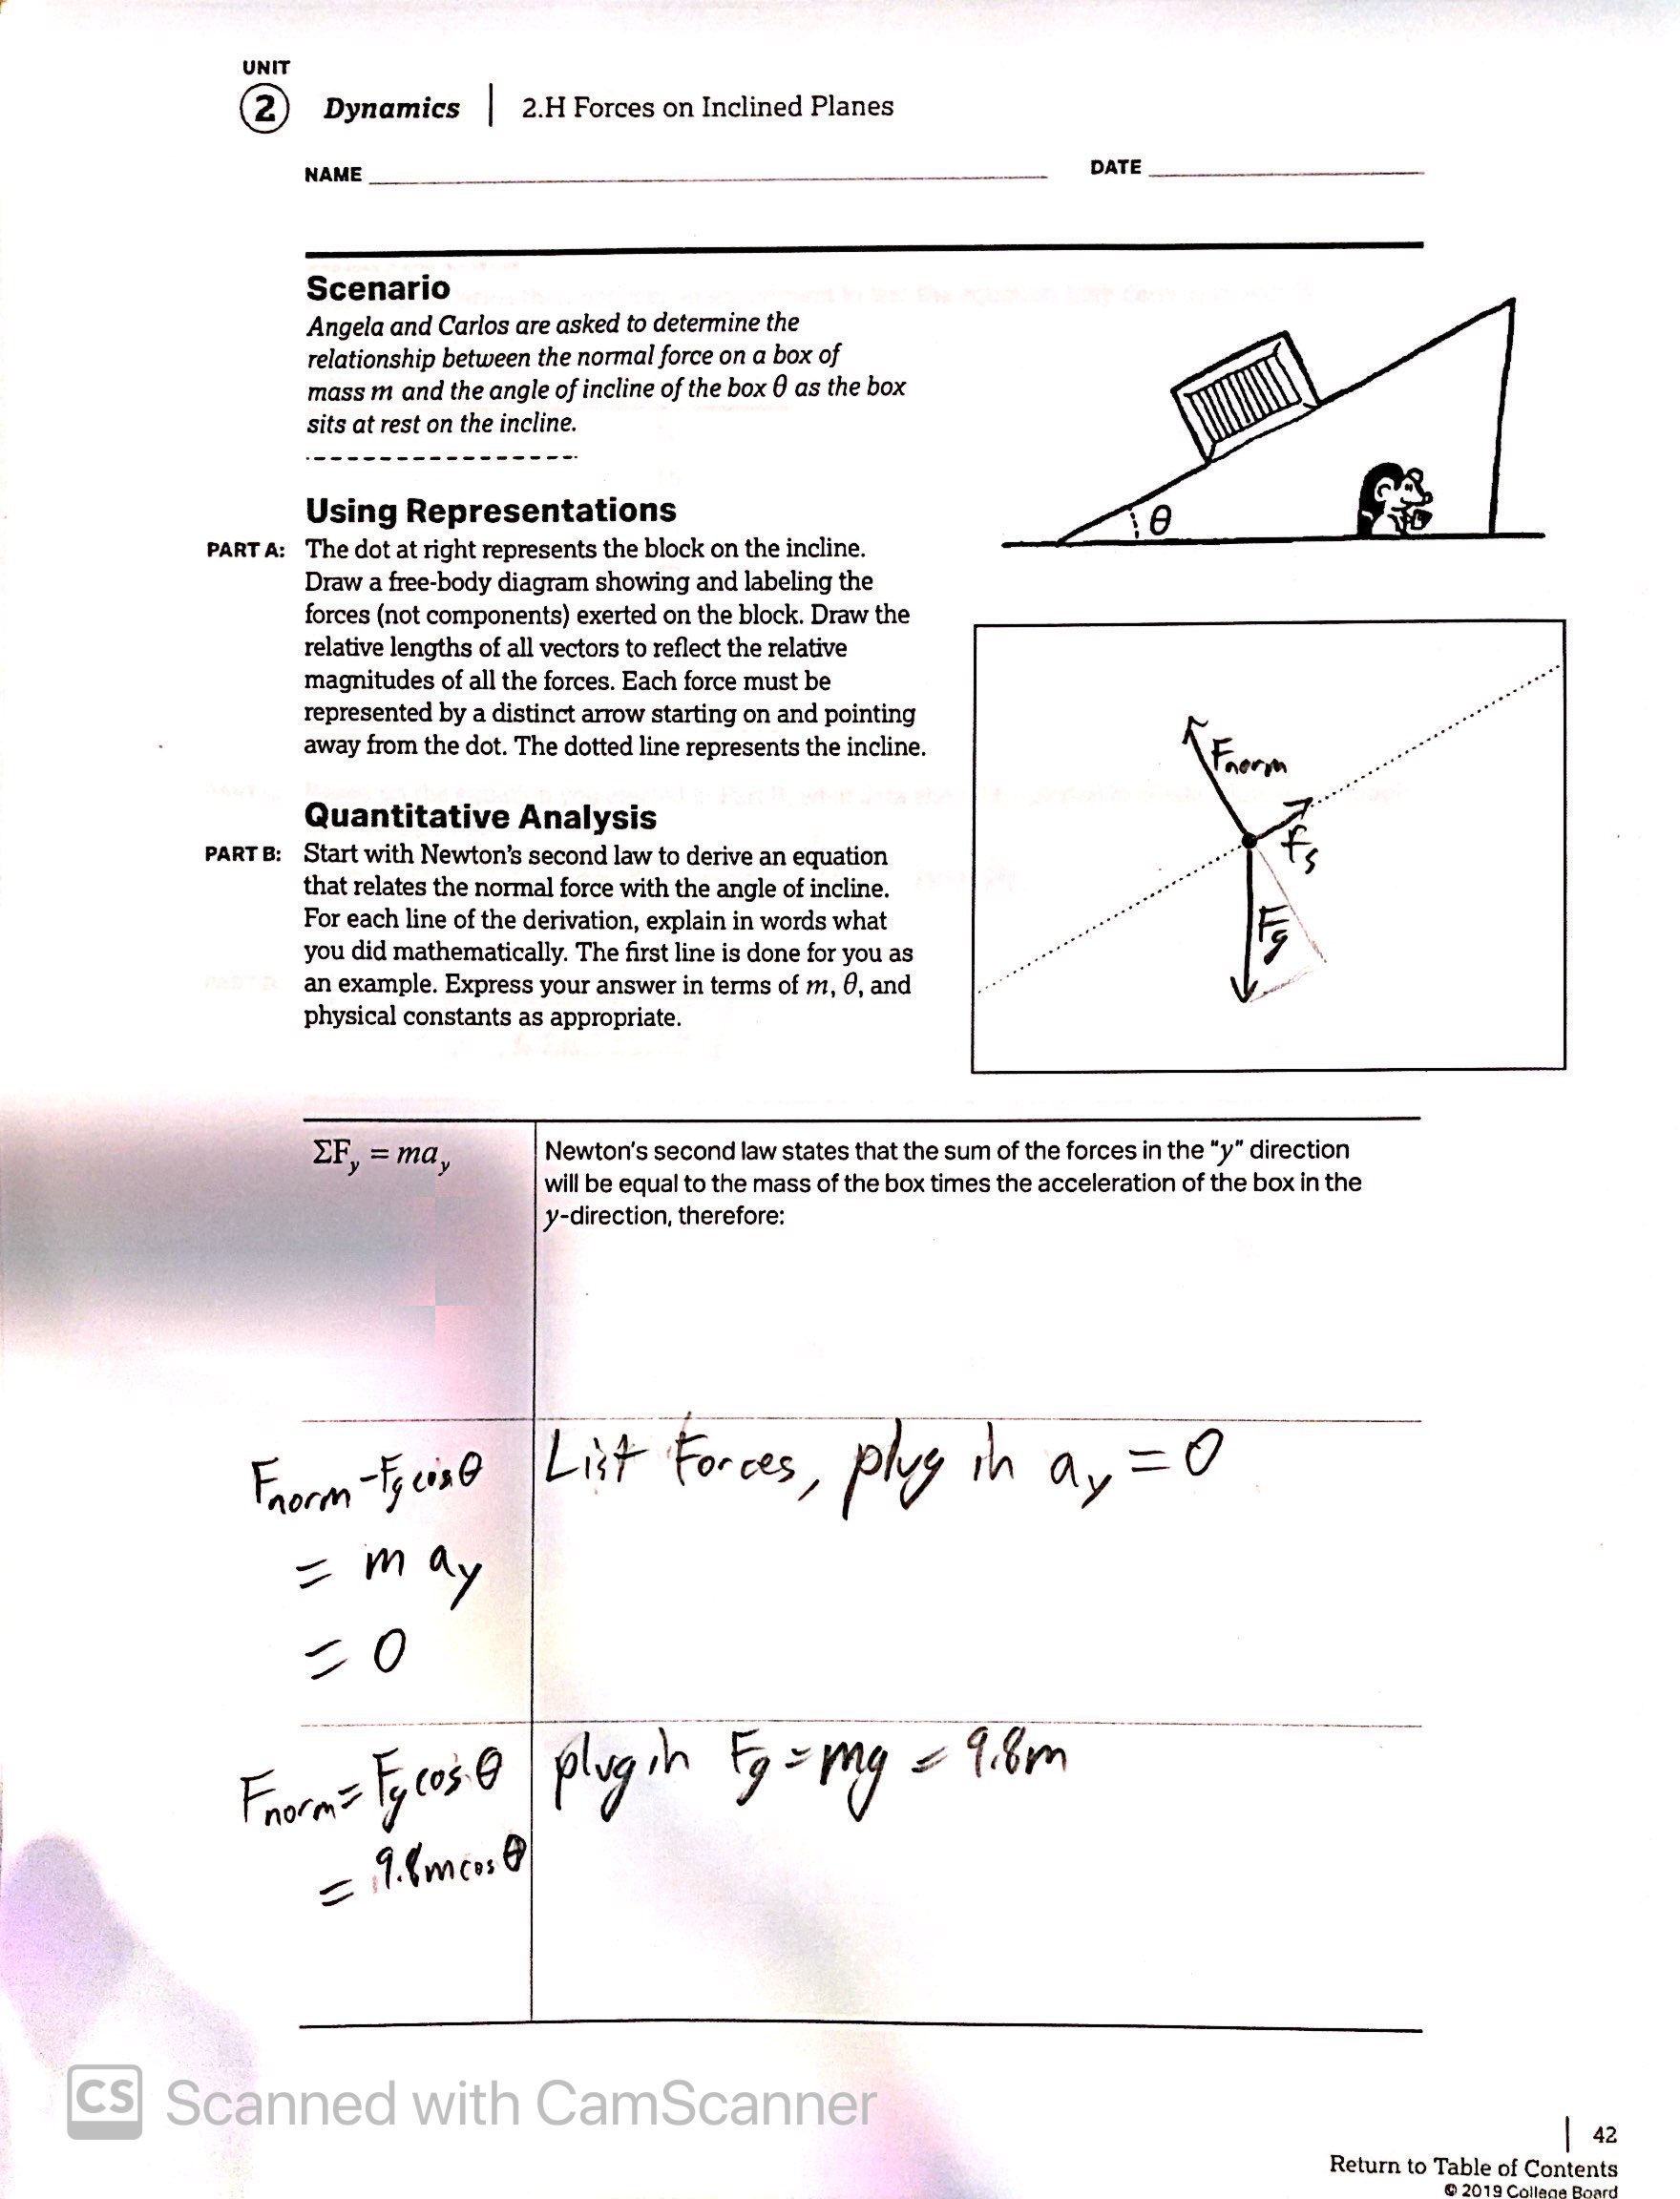 UNIT
2 Dynamics | 2.H Forces on Inclined Planes
NAME
DATE
Scenario
Angela and Carlos are asked to determine the
relationship between the normal force on a box of
mass m and the angle of incline of the box θ as the box
sits at rest on the incline.
θ
Using Representations
PART A: The dot at right represents the block on the incline.
Draw a free-body diagram showing and labeling the
forces (not components) exerted on the block. Draw the
relative lengths of all vectors to reflect the relative
magnitudes of all the forces. Each force must be
represented by a distinct arrow starting on and pointing
away from the dot. The dotted line represents the incline.
Fnorm
fs
Fg
Quantitative Analysis
PART B: Start with Newton's second law to derive an equation
that relates the normal force with the angle of incline.
For each line of the derivation, explain in words what
you did mathematically. The first line is done for you as
an example. Express your answer in terms of m, θ, and
physical constants as appropriate.
ΣFy = may
Newton's second law states that the sum of the forces in the "y" direction
will be equal to the mass of the box times the acceleration of the box in the
y-direction, therefore:
Fnorm - Fg cosθ
= m ay
= 0
List Forces, plug in ay = 0
Fnorm = Fg cosθ
= 9.8m cosθ
plug in Fg = mg = 9.8m
CS Scanned with CamScanner
42
Return to Table of Contents
© 2019 College Board